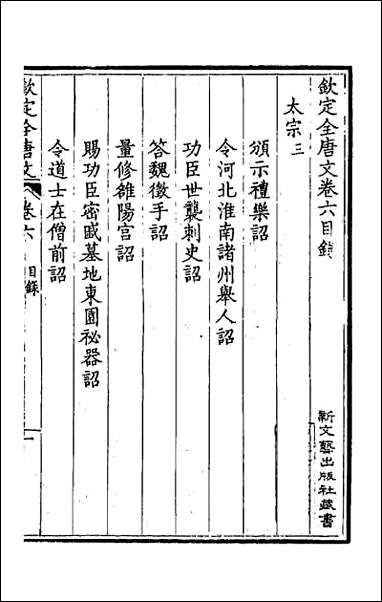 欽定全唐文卷六目錄
太宗三
頒示禮樂詔
令河北淮南諸州舉人詔
功臣世襲刺史詔
答魏徵手詔
量修雒陽宮詔
賜功臣密戚墓地東園祕器詔
令道士在僧前詔
欽定全唐文
卷六
目錄
一
新文藝出版社藏書